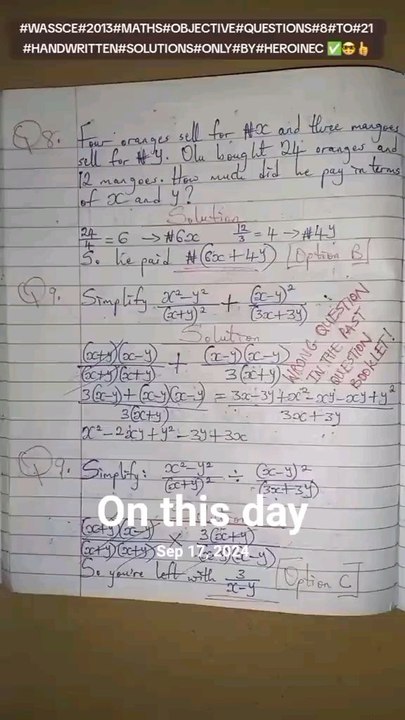 #WASSCE#2013#MATHS#OBJECTIVE#QUESTIONS#8#TO#21
#HANDWRITTEN#SOLUTIONS#ONLY#BY#HEROINEC ✅😎👍
Q8. Four oranges sell for ₦x and three mangoes
sell for ₦y. Olu bought 24 oranges and
12 mangoes. How much did he pay in terms
of x and y?
Solution
24/4 = 6 → ₦6x 12/3 = 4 → ₦4y
So he paid ₦(6x + 4y) [Option B]
Q9. Simplify x²-y²/(x+y)² + (x-y)²/(3x+3y)
Solution
(x+y)(x-y)/(x+y)(x+y) + (x-y)(x-y)/3(x+y)
3(x-y)+(x-y)(x-y)/3(x+y) = 3x-3y+x²-xy-xy+y²/3x+3y
x²-2xy+y²-3y+3x
WRONG QUESTION
IN THE PAST
QUESTION
BOOKLET!
Q9. Simplify: x²-y²/(x+y)² ÷ (x-y)²/(3x+3y)
On this day
Sep 17, 2024
(x+y)(x-y)/(x+y)(x+y) × 3(x+y)/(x-y)(x-y)
So you're left with 3/x-y [Option C]